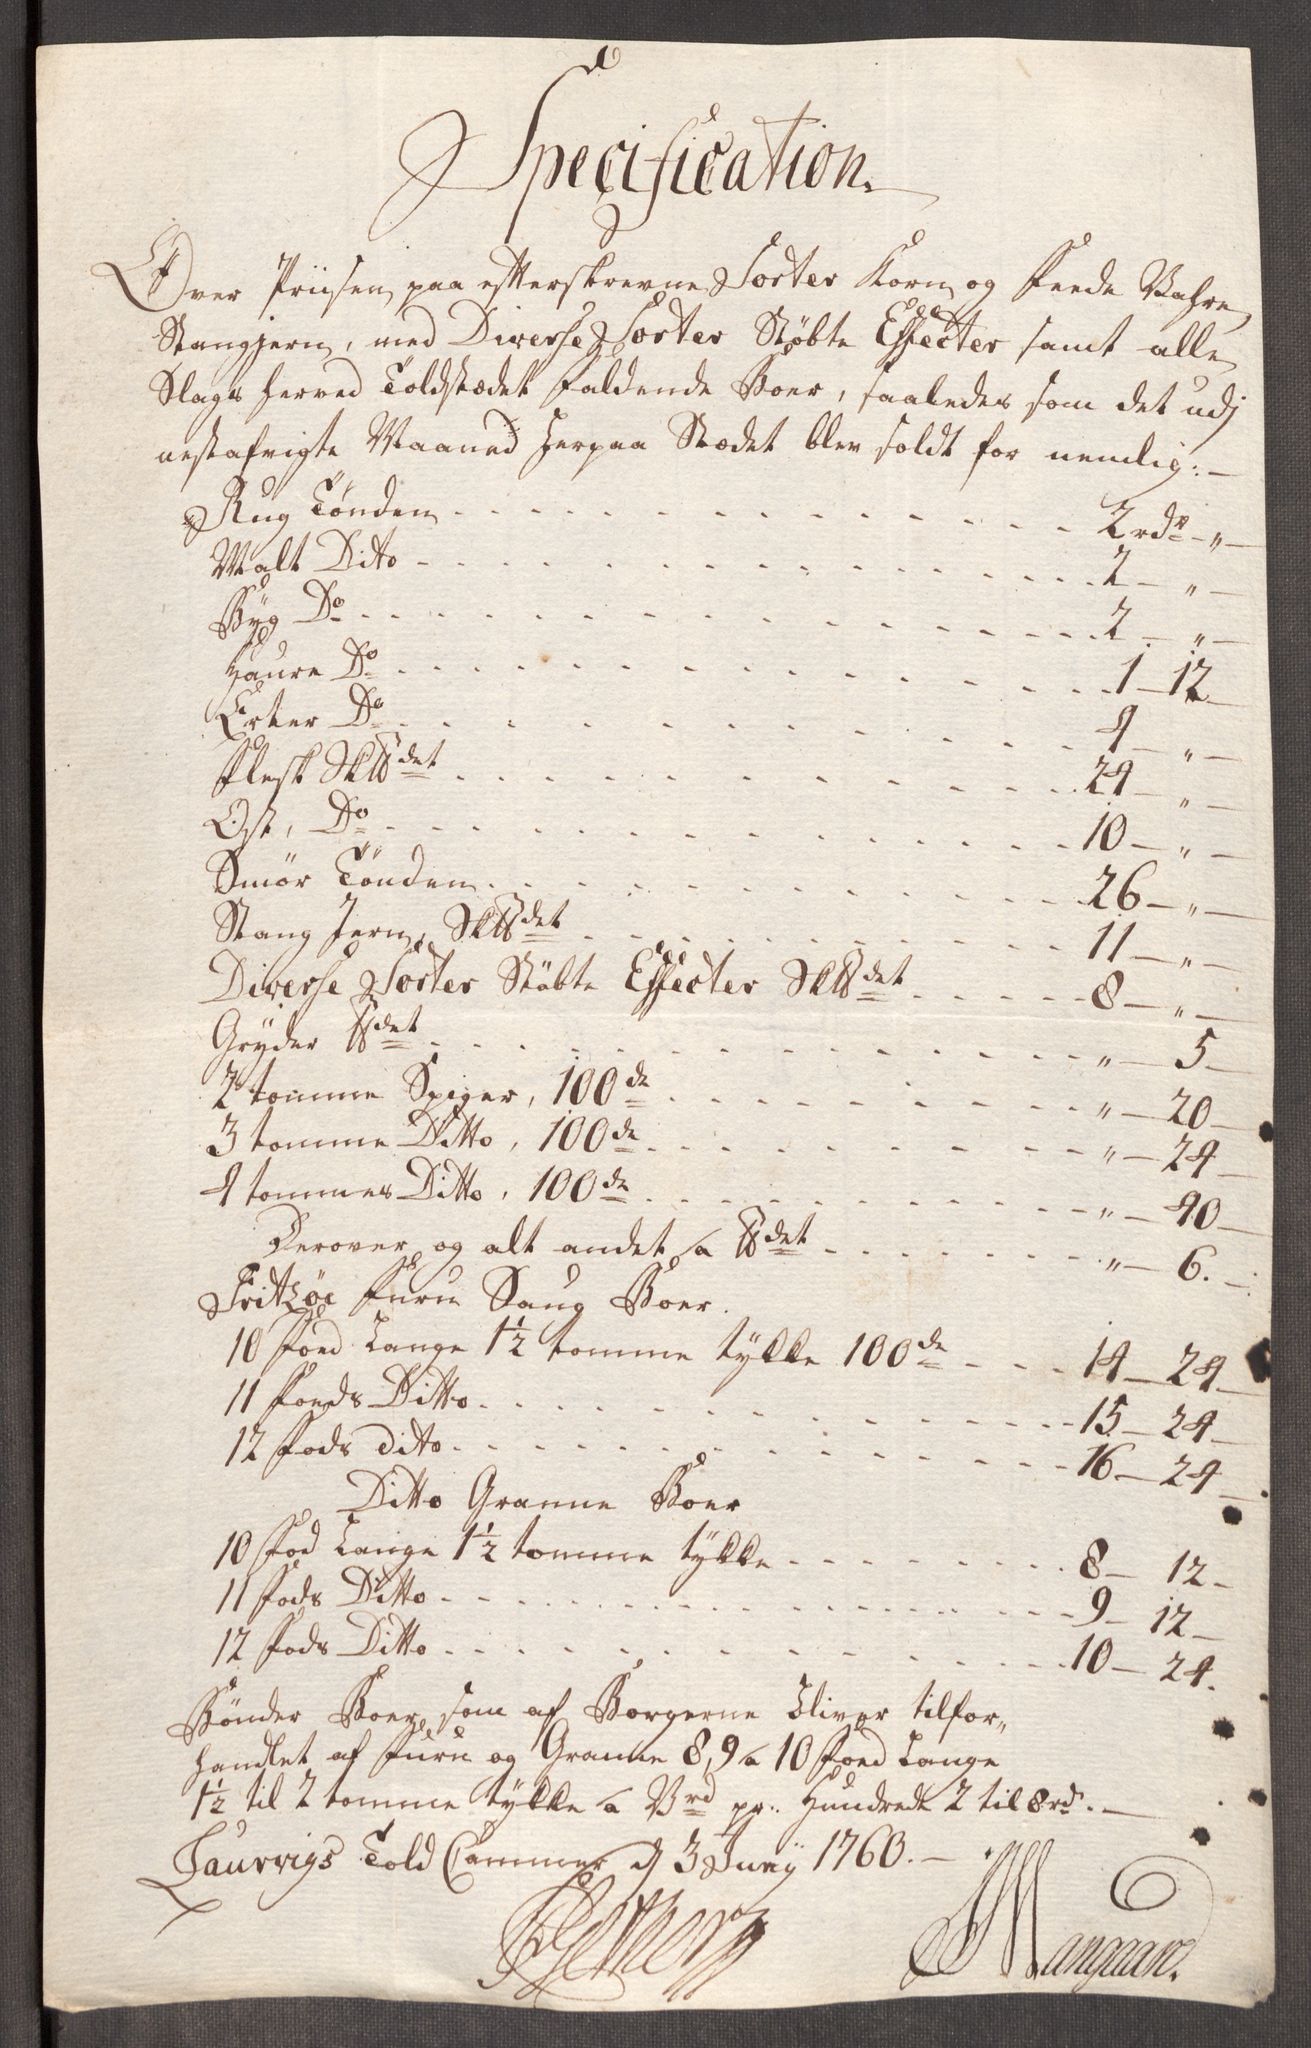 Specification.
Over Priisen paa efterskrevne Sorter Korn og Feede Vahre,
Stangjern, med Diverse Sorter Støbte Effecter samt alle
Slags herved Toldstædet faldende Boer, saaledes som det udj
nestafvigte Maaned herpaa Stædet blev soldt for nemlig: –
Rug Tønden - - - 2 rdr – „ –
Malt Dito - - - 2 – „ –
Byg Do - - - 2 – „ –
Haure Do - - - 1 – 12 –
Erter Do - - - 4 – „ –
Flesk Sk℔det - - - 24 – „ –
Ost, Do - - - 10 – „ –
Smör Tönden - - - 26 – „ –
Stang Jern, Sk℔det - - - 11 – „ –
Diverse Sorter Stöbte Effecter Sk℔det - - - 8 – „ –
Gryder ℔det - - - „ – 5 –
2 tomme Spiger, 100de - - - „ – 20 –
3 tomme Ditto, 100de - - - „ – 24 –
4 tommes Ditto, 100de - - - „ – 40 –
Derover og alt andet a ℔det - - - „ – 6. –
Fritzöe Furu Saug Boer.
10 Foed Lange 1½ tomme tykke 100de - - - 14 – 24 –
11 Foeds Ditto - - - 15 – 24 –
12 Fods dito - - - 16 – 24 –
Ditto Granne Boer
10 Fod Lange 1½ tomme tykke - - - 8 – 12 –
11 Fods Ditto - - - 9 – 12 –
12 Fods Ditto - - - 10 – 24.
Bønder Boer, som af Borgerne bliver tilfor„
handlet af Furu og Granne 8, 9 a 10 Foed Lange
1½ til 2 tomme tykke a Brd pr: Hundrede 2 til 8 rd. –
Laurvigs Told Cammer d 3 Junij 1760. –